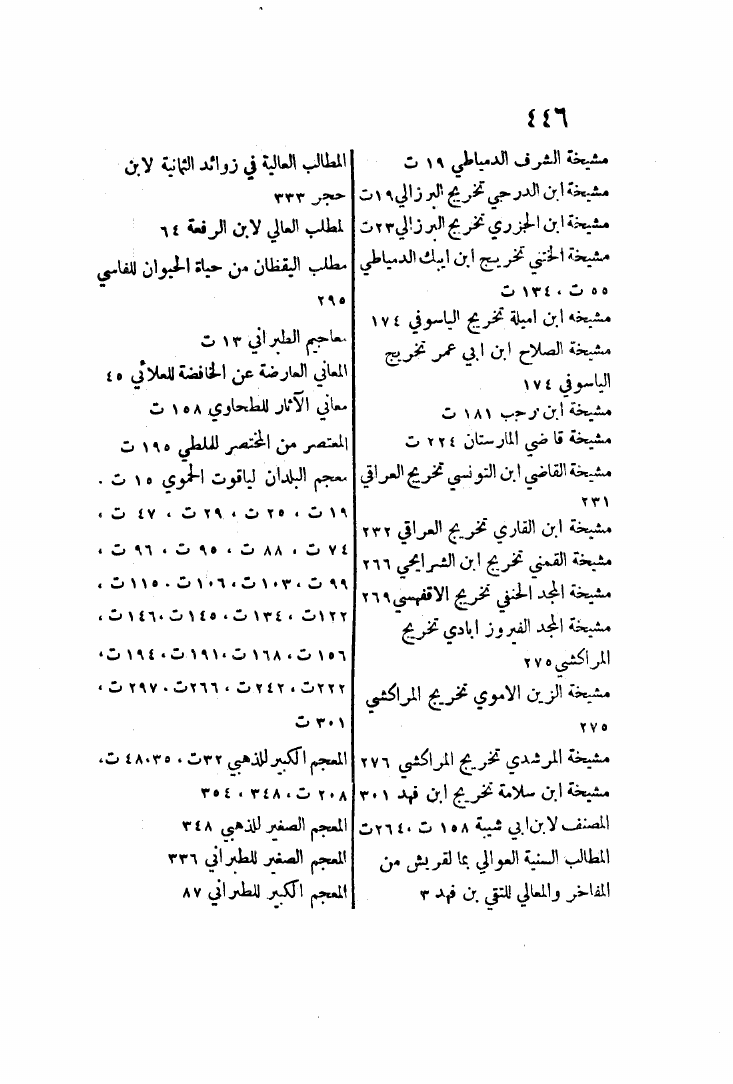 ٤٤٦
مشيخة الشرف الدمياطي ١٩ ت
مشيخة ابن الدرجي تخريج البرزالي ١٩ ت
مشيخة ابن الجزري تخريج البرزالي ٢٣ ت
مشيخة الختني تخريج ابن ايبك الدمياطي
٥٥ ت ، ١٣٤ ت
مشيخه ابن اميلة تخريج الياسوفي ١٧٤
مشيخة الصلاح ابن ابي عمر تخريج
الياسوفي ١٧٤
مشيخة ابن رجب ١٨١ ت
مشيخة قاضي المارستان ٢٢٤ ت
مشيخة القاضي ابن التونسي تخريج العراقي
٢٣١
مشيخة ابن القاري تخريج العراقي ٢٣٢
مشيخة القمني تخريج ابن الشرايحي ٢٦٦
مشيخة المجد الحنفي تخريج الاقفهسي ٢٦٩
مشيخة المجد الفيروز ابادي تخريج
المراكشي ٢٧٥
مشيخة الزين الاموي تخريج المراكشي
٢٧٥
مشيخة المرشدي تخريج المراكشي ٢٧٦
مشيخة ابن سلامة تخريج ابن فهد ٣٠١
المصنف لابن ابي شيبة ١٥٨ ت ،٢٦٤ ت
المطالب السنية العوالي بما لقريش من
المفاخر والمعالي للتقي بن فهد ٣
المطالب العالية في زوائد الثمانية لابن
حجر ٣٣٣
لمطلب العالي لابن الرفعة ٦٤
مطلب اليقظان من حياة الحيوان للفاسي
٢٩٥
معاجيم الطبراني ١٣ ت
المعاني العارضة عن الخافضة للعلائي ٤٥
معاني الآثار للطحاوي ١٥٨ ت
المعتصر من المختصر للملطي ١٩٥ ت
معجم البلدان لياقوت الحموي ١٥ ت .
١٩ ت ، ٢٥ ت ، ٢٩ ت ، ٤٧ ت ،
٧٤ ت ، ٨٨ ت ، ٩٥ ت ، ٩٦ ت ،
٩٩ ت ، ١٠٣ ت ، ١٠٦ ت . ١١٥ ت ،
١٢٢ ت ، ١٣٤ ت ، ١٤٥ ت ،١٤٦ ت ،
١٥٦ ت ، ١٦٨ ت ،١٩١ ت ، ١٩٤ ت ،
٢٢٢ ت ، ٢٤٢ ت ، ٢٦٦ ت ، ٢٩٧ ت ،
٣٠١ ت
المعجم الكبير للذهبي ٣٢ ت ، ٣٥ ، ٤٨ ت ،
٢٠٨ ت ، ٣٤٨ ، ٣٥٤
المعجم الصغير للذهبي ٣٤٨
المعجم الصغير للطبراني ٣٣٦
المعجم الكبير للطبراني ٨٧